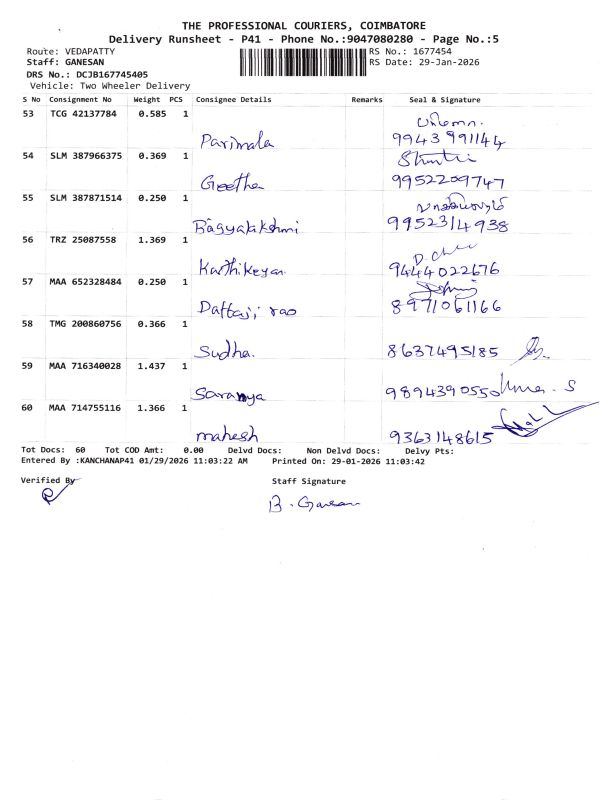 THE PROFESSIONAL COURIERS, COIMBATORE
Delivery Runsheet - P41 - Phone No.:9047080280 - Page No.:5
Route: VEDAPATTY RS No.: 1677454
Staff: GANESAN RS Date: 29-Jan-2026
DRS No.: DCJB167745405
Vehicle: Two Wheeler Delivery
S No Consignment No Weight PCS Consignee Details Remarks Seal & Signature
53 TCG 42137784 0.585 1
Parimala 9943991144
54 SLM 387966375 0.369 1
Geetha 9952209747
55 SLM 387871514 0.250 1
Bagyalakshmi 9952314938
56 TRZ 25087558 1.369 1
Karthikeyan 9444022676
57 MAA 652328484 0.250 1
Dattaji rao 8971061166
58 TMG 200860756 0.366 1
Sudha. 8637495185
59 MAA 716340028 1.437 1
Saranya 9894390550
60 MAA 714755116 1.366 1
mahesh 9363148615
Tot Docs: 60 Tot COD Amt: 0.00 Delvd Docs: Non Delvd Docs: Delvy Pts:
Entered By :KANCHANAP41 01/29/2026 11:03:22 AM Printed On: 29-01-2026 11:03:42
Verified By Staff Signature
B. Ganesan